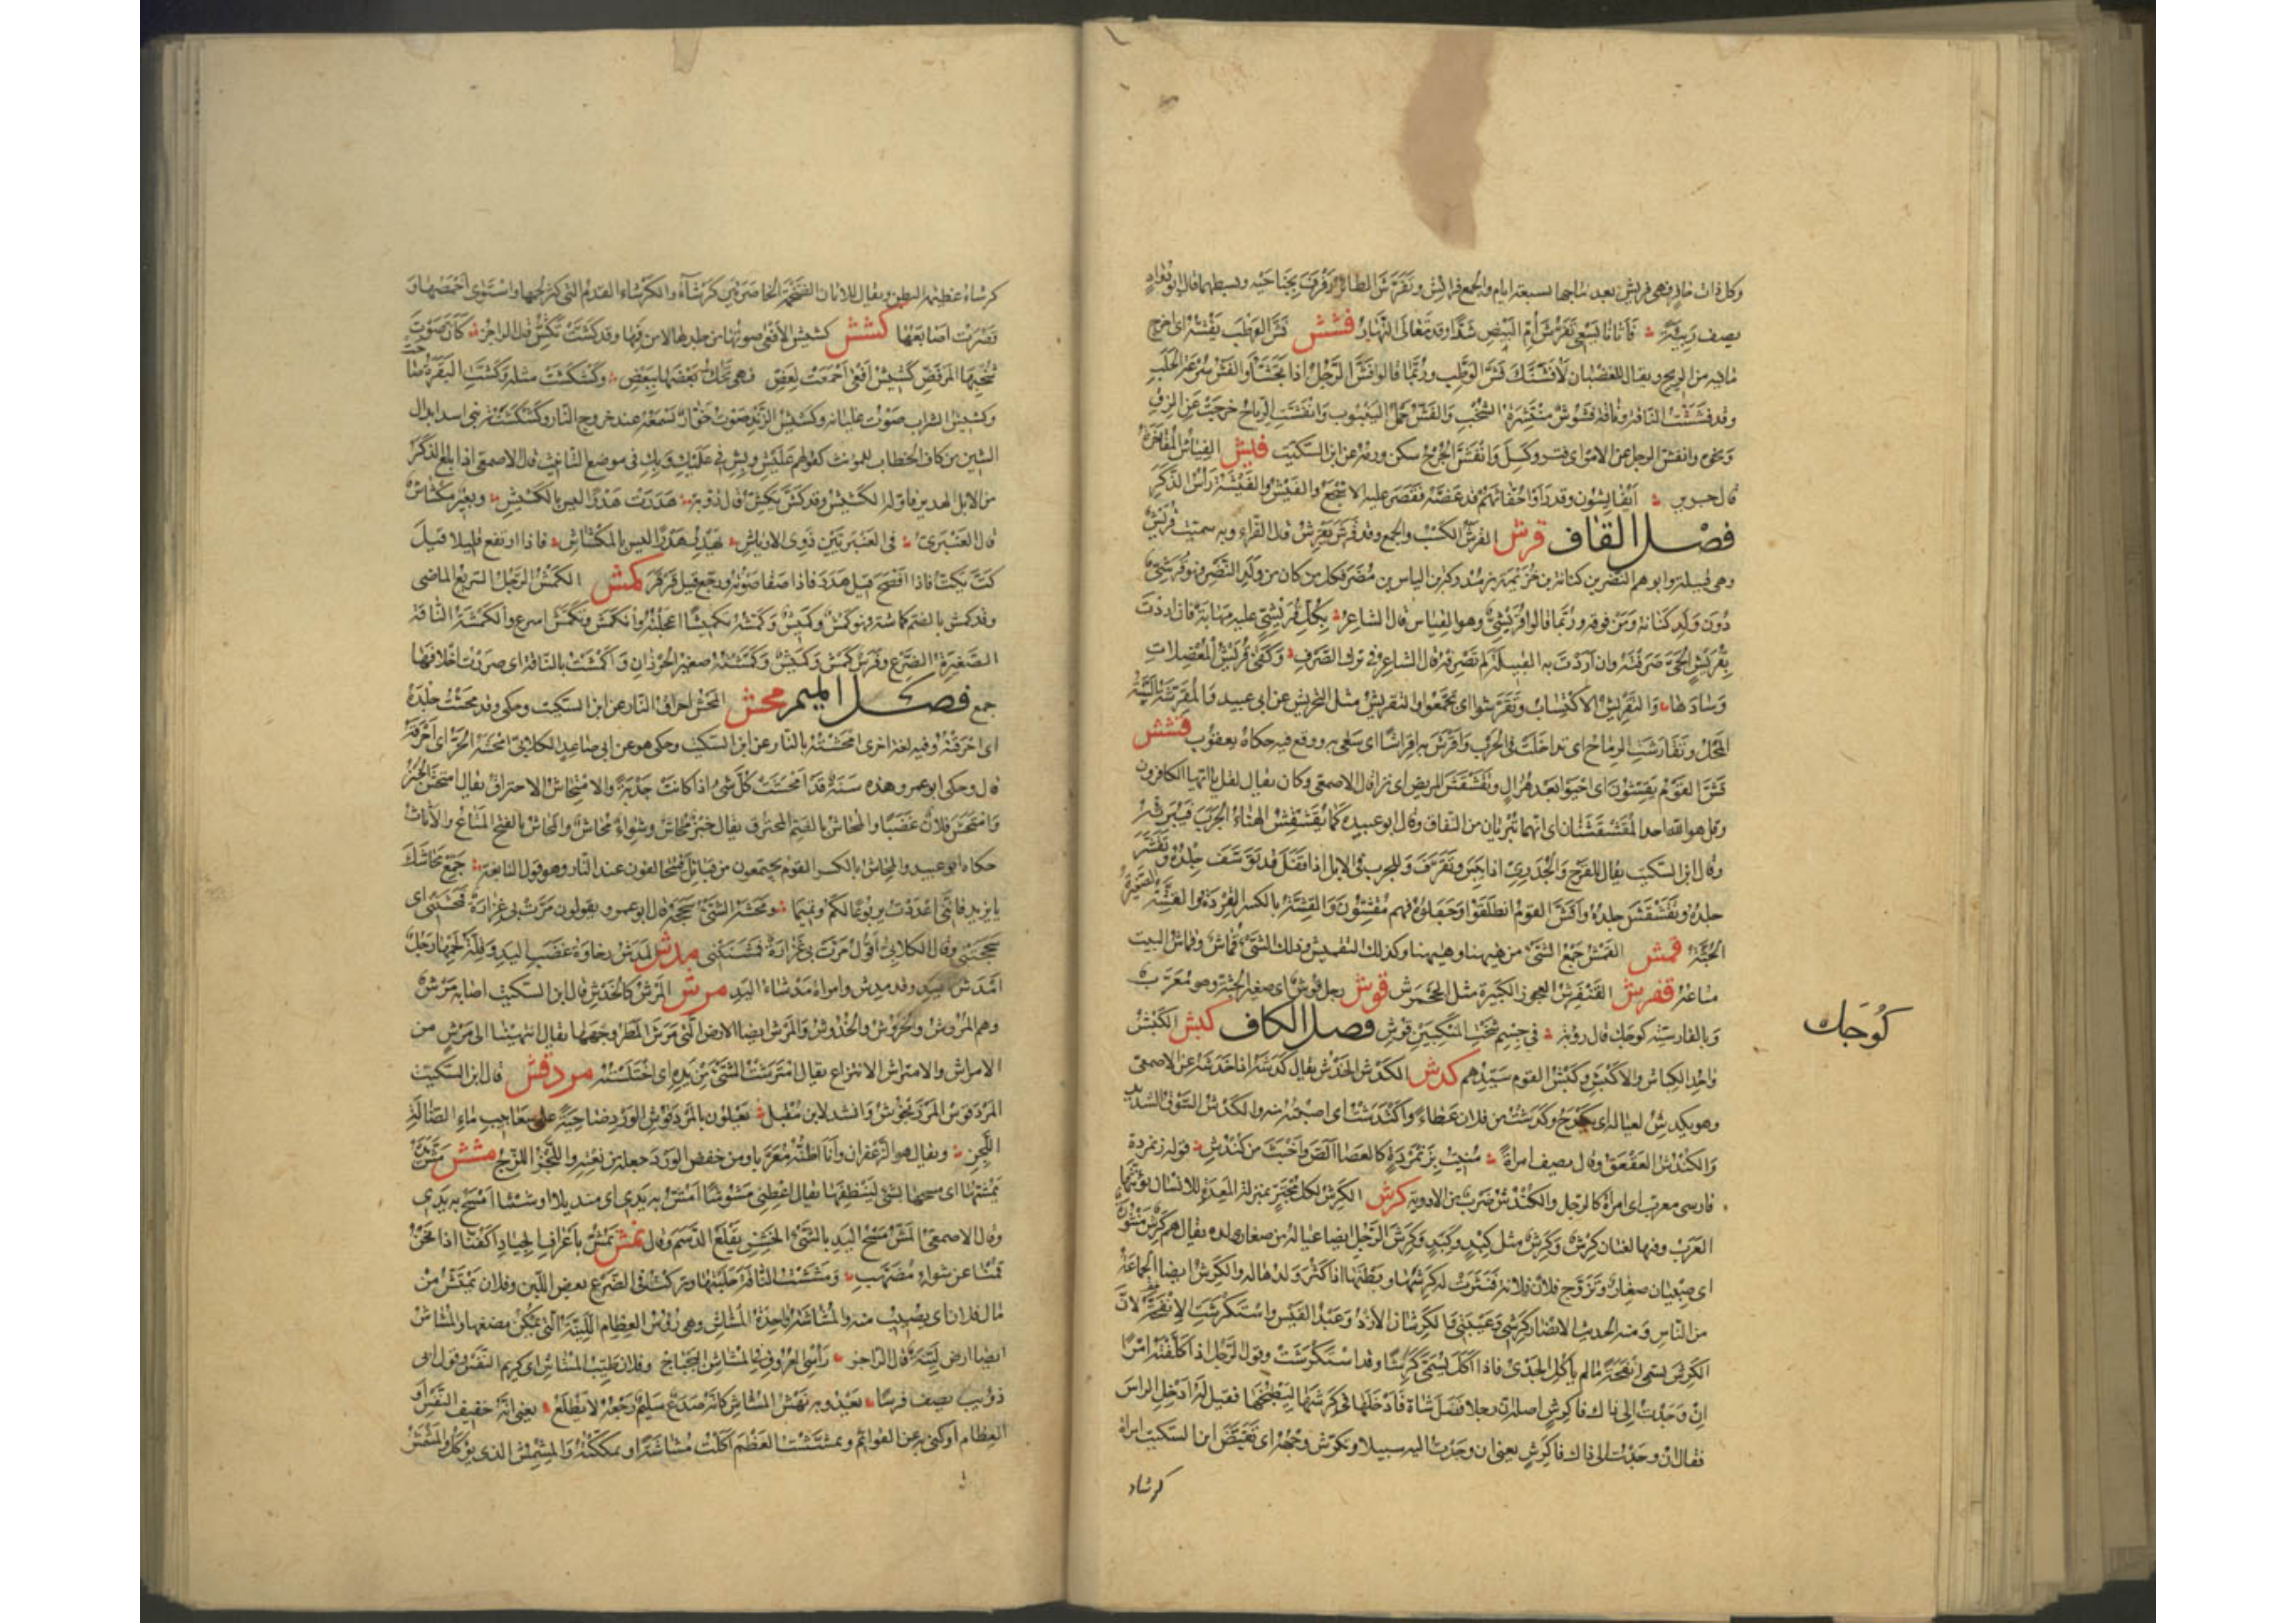 وكل ذات حافر فهي فريش بعد نتاجها بسبعة ايام والجمع فرائش وتفرش الطائر رفرف بجناحيه وبسطهما قال ابو دؤاد
يصف ربيئة فأتانا يسعى تفرش أم البيض شدا وقد تعالى النهار فشش فش الوطب يفشه اى اخرج
ما فيه من الريح ويقال للغضبان لأفشنك فش الوطب وربما قالوا فش الرجل اذا تجشأ والفش سرعة الحلب
وقد فششت الناقة وناقة فشوش منتشرة الشخب والفش حمل الينبوت وانفشت الرياح خرجت عن الزق
ونحوه وانفش الرجل عن الامر اى فتر وكسل وانفش الجرح سكن ورمه عن ابن السكيت فيش الفياش المفاخرة
قال جرير أيفايشون وقد رأوا حفاثهم قد عضه فقضى عليه الاشجع والفيش والفيشة رأس الذكر
فصل القاف قرش القرش الكسب والجمع وقد قرش يقرش قال الفراء وبه سميت قريش
وهى قبيلة وابوهم النضر بن كنانة بن خزيمة بن مدركة بن الياس بن مضر فكل من كان من ولد النضر فهو قرشى
دون ولد كنانة ومن فوقه وربما قالوا قريشى وهو القياس قال الشاعر بكل قريشى عليه مهابة فان اردت
بقريش الحى صرفته وان أردت به القبيلة لم تصرفه قال الشاعر فى ترك الصرف وكفى قريش المعضلات
وسادها والتقريش الاكتساب وتقرشوا اى تجمعوا والتقريش مثل التحريش عن ابى عبيد والمقرشة السنة
المحل وتقارشت الرماح اى تداخلت فى الحرب وأقرش به اقراشا اى سعى به ووقع فيه حكاه يعقوب قشش
قش القوم يقشون اى احيوا بعد هزال وتقشقش المريض اى برأ قال الاصمعى وكان يقال لقل يا ايها الكافرون
وقل هو الله احد المقشقشتان اى انهما تبرئان من النفاق وقال ابو عبيدة كما يقشقش الهناء الجرب فيبرئه
وقال ابن السكيت يقال للقرح والجدرى اذا يبس وتقرف وللجرب فى الابل اذا قفل قد توسف جلده وتقشر
جلده وتقشقش جلده وأقش القوم انطلقوا وجفلوا فهم مقشون والقشة بالكسر القردة والقشة الصغيرة
الجثة قمش القمش جمع الشئ من ههنا وههنا وكذلك التقميش وذلك الشئ قماش وقماش البيت
متاعه قنفرش القنفرش العجوز الكبيرة مثل الجحمرش قوش رجل قوش اى صغير الجثة وهو معرب
وبالفارسية كوچك قال رؤبة فى جسم شخت المنكبين قوش فصل الكاف كبش الكبش
واحد الكباش والأكبش وكبش القوم سيدهم كدش الكدش الخدش يقال كدشه اذا خدشه عن الاصمعى
وهو يكدش لعياله اى يكدح وكدشت من فلان عطاء واكتدشت اى اصبت منه والكدش السوق الشديد
والكندش العقعق وقال يصف امرأة منيت بزنمردة كالعصا ألص وأخبث من كندش قوله زنمردة
فارسى معرب اى امرأة كالرجل والكندش ضرب من الادوية كرش الكرش لكل مجتر بمنزلة المعدة للانسان تؤنثها
العرب وفيها لغتان كرش وكرش مثل كبد وكبد وكرش الرجل ايضا عياله من صغار ولده يقال هم كرش منثورة
اى صبيان صغار وتزوج فلان فلانة فنثرت له كرشها وبطنها اذا كثر ولدها له والكرش ايضا الجماعة
من الناس ومنه الحديث الانصار كرشى وعيبتى والكرشان الأزد وعبد القيس واستكرشت الانفحة لان
الكرش يسمى انفحة ما لم يأكل الجدى فاذا أكل يسمى كرشا وقد استكرشت وقول الرجل اذا كلفته امرا
ان وجدت الى ذاك فا كرش اصله ان رجلا فصل شاة فأدخلها فى كرشها ليطبخها فقيل له ادخل الراس
فقال ان وجدت الى ذاك فا كرش يعنى ان وجدت اليه سبيلا وتكرش وجهه اى تقبض ابن السكيت امرأة
كرشاء
كوجك
كرشاء عظيمة البطن ويقال للاتان الضخمة الخاصرتين كرشاء والكرشاء القدم التى كثر لحمها واستوى أخمصها و
قصرت اصابعها كشش كشيش الافعى صوتها من جلدها لا من فمها وقد كشت تكش قال الراجز كأن صوت
شخبها المرفض كشيش أفعى أجمعت لعض فهى تحك بعضها ببعض وكشكشت مثله وكشت البقرة صاحت
وكشيش الشراب صوت غليانه وكشيش الزند صوت خوار تسمعه عند خروج النار وكشكشة بنى اسد ابدال
الشين من كاف الخطاب للمؤنث كقولهم عليش وبش فى عليك وبك فى موضع التأنيث قال الاصمعى اذا بلغ الذكر
من الابل الهدير فاوله الكشيش وقد كش يكش قال رؤبة هدرت هدرا ليس بالكشيش وبعير مكشاش
قال العنبرى فى العنبريين ذوى الارياش يهدر هدرا ليس بالمكشاش فاذا ارتفع قليلا قيل
كت يكت فاذا افصح قيل هدر فاذا صفا صوته ورجع قيل قرقر كمش الكمش الرجل السريع الماضى
وقد كمش بالضم كماشة فهو كمش وكميش وكمشته تكميشا اعجلته وانكمش وتكمش اسرع والكمشة الناقة
الصغيرة الضرع وفرس كمش وكميش وكمشة صغير الجردان واكمشت بالناقة اى صررت اخلافها
جمع فصل الميم محش المحش احراق النار عن ابن السكيت وحكى وقد محشت جلده
اى احرقته وفيه لغة اخرى امحشته بالنار عن ابن السكيت وحكى هو عن ابى صاعد الكلابى امحشه الحر اى احرقه
قال وحكى ابو عمرو هذه سنة قد امحشت كل شئ اذا كانت جدبة والامتحاش الاحتراق يقال امتحش الخبز
وامتحش فلان غضبا والمحاش بالضم المحترق يقال خبز محاش وشواء محاش والمحاش بالفتح المتاع والأثاث
حكاه ابو عبيد والمحاش بالكسر القوم يجتمعون من قبائل فيتحالفون عند النار وهو قول النابغة جمع محاشك
يا يزيد فاننى اعددت يربوعا لكم وتميما ومحشه الشئ سحجه قال ابو عمرو يقولون مرت بى غرارة فمحشتنى اى
سحجتنى وقال الكلابى اقول مرت بى غرارة فمشنتنى مدش المدش رخاوة عصب اليد وقلة لحمها ورجل
أمدش اليد وقد مدش وامرأة مدشاء اليد مرش المرش كالخدش قال ابن السكيت اصابه مرش
وهم المروش والخروش والخدوش والمرش ايضا الارض التى مرش المطر وجهها يقال انتهينا الى مرش من
الامراش والامتراش الانتزاع يقال امترشت الشئ من يده اى اختلسته مردقش قال ابن السكيت
المردقوش المرزنجوش وانشد لابن مقبل يعلون بالمردقوش الورد ضاحية على سعابيب ماء الضالة
اللجن ويقال هو الزعفران وأنا اظنه معربا ومن خفض الورد جعله من نعته واللجن اللزج مشش مش يده
يمشها اى مسحها بشئ لينظفها يقال اعطنى مشوشا أمش به يدى اى منديلا او شيئا امسح به يدى
وقال الاصمعى المش مسح اليد بالشئ الخشن يقلع الدسم وقال نمش نمش بأعراف الجياد أكفنا اذا نحن
قمنا عن شواء مضهب ومششت الناقة حلبتها وتركت فى الضرع بعض اللبن وفلان يمتش من
مال فلان اى يصيب منه والمشاشة واحدة المشاش وهى رؤس العظام اللينة التى يمكن مضغها والمشاش
ايضا ارض لينة قال الراجز راسى العروق فى المشاش البجباج وفلان طيب المشاش اى كريم النفس وقول ابى
ذؤيب يصف فرسا يعدو به نهش المشاش كأنه صدع سليم رجعه لا يظلع يعنى انه خفيف النفس او
العظام او كنى به عن القوائم وتمششت العظم أكلت مشاشه او تمككته والمشمش الذى يؤكل والمشمش